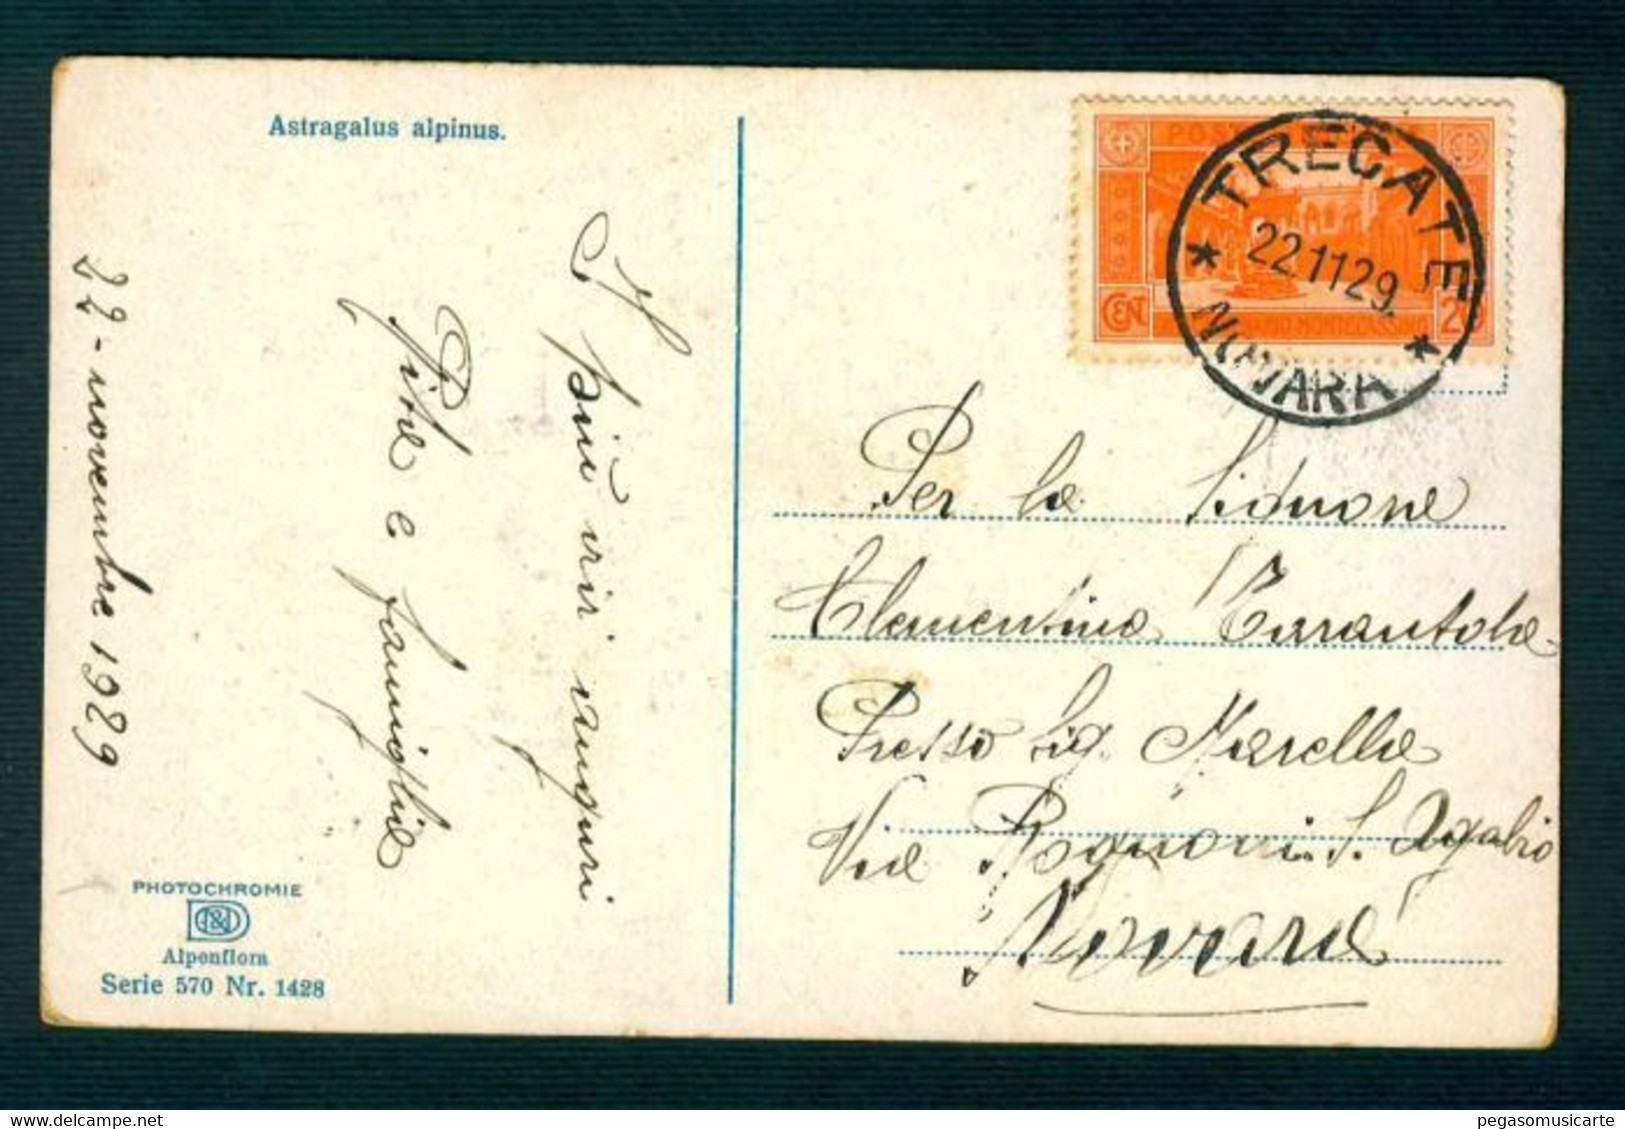 Astragalus alpinus.
22-novembre 1929
I più vivi auguri
e famiglia
PHOTOCHROMIE
Alpenflora
Serie 570 Nr. 1428
POSTE
CENT 20
MONTECASSINO
TRECATE
22 11 29.
NOVARA
Per la Signora
Clementina Tarantola
Presso Sig. Marella
Via Rognoni. S. Agabio
Novara
pegasomusicarte